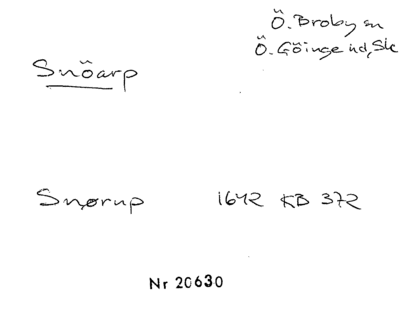 Ö. Broby sn
Ö. Göinge hd, Sk
Snöarp
Snørup 1642 KB 372
Nr 20630